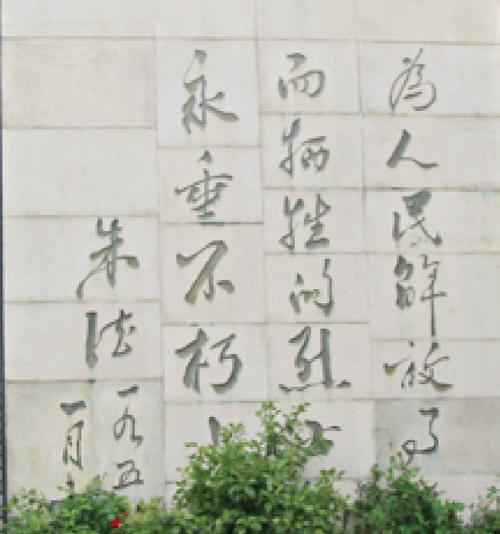 為人民解放事
而牺牲的烈士
永垂不朽
朱德
一九五
一月